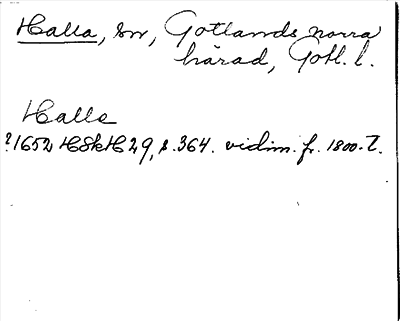 Halla, sn, Gotlands norra
härad, Gotl. l.
Halle
? 1652 HSkH 29, s. 364. vidim. fr. 1800-t.